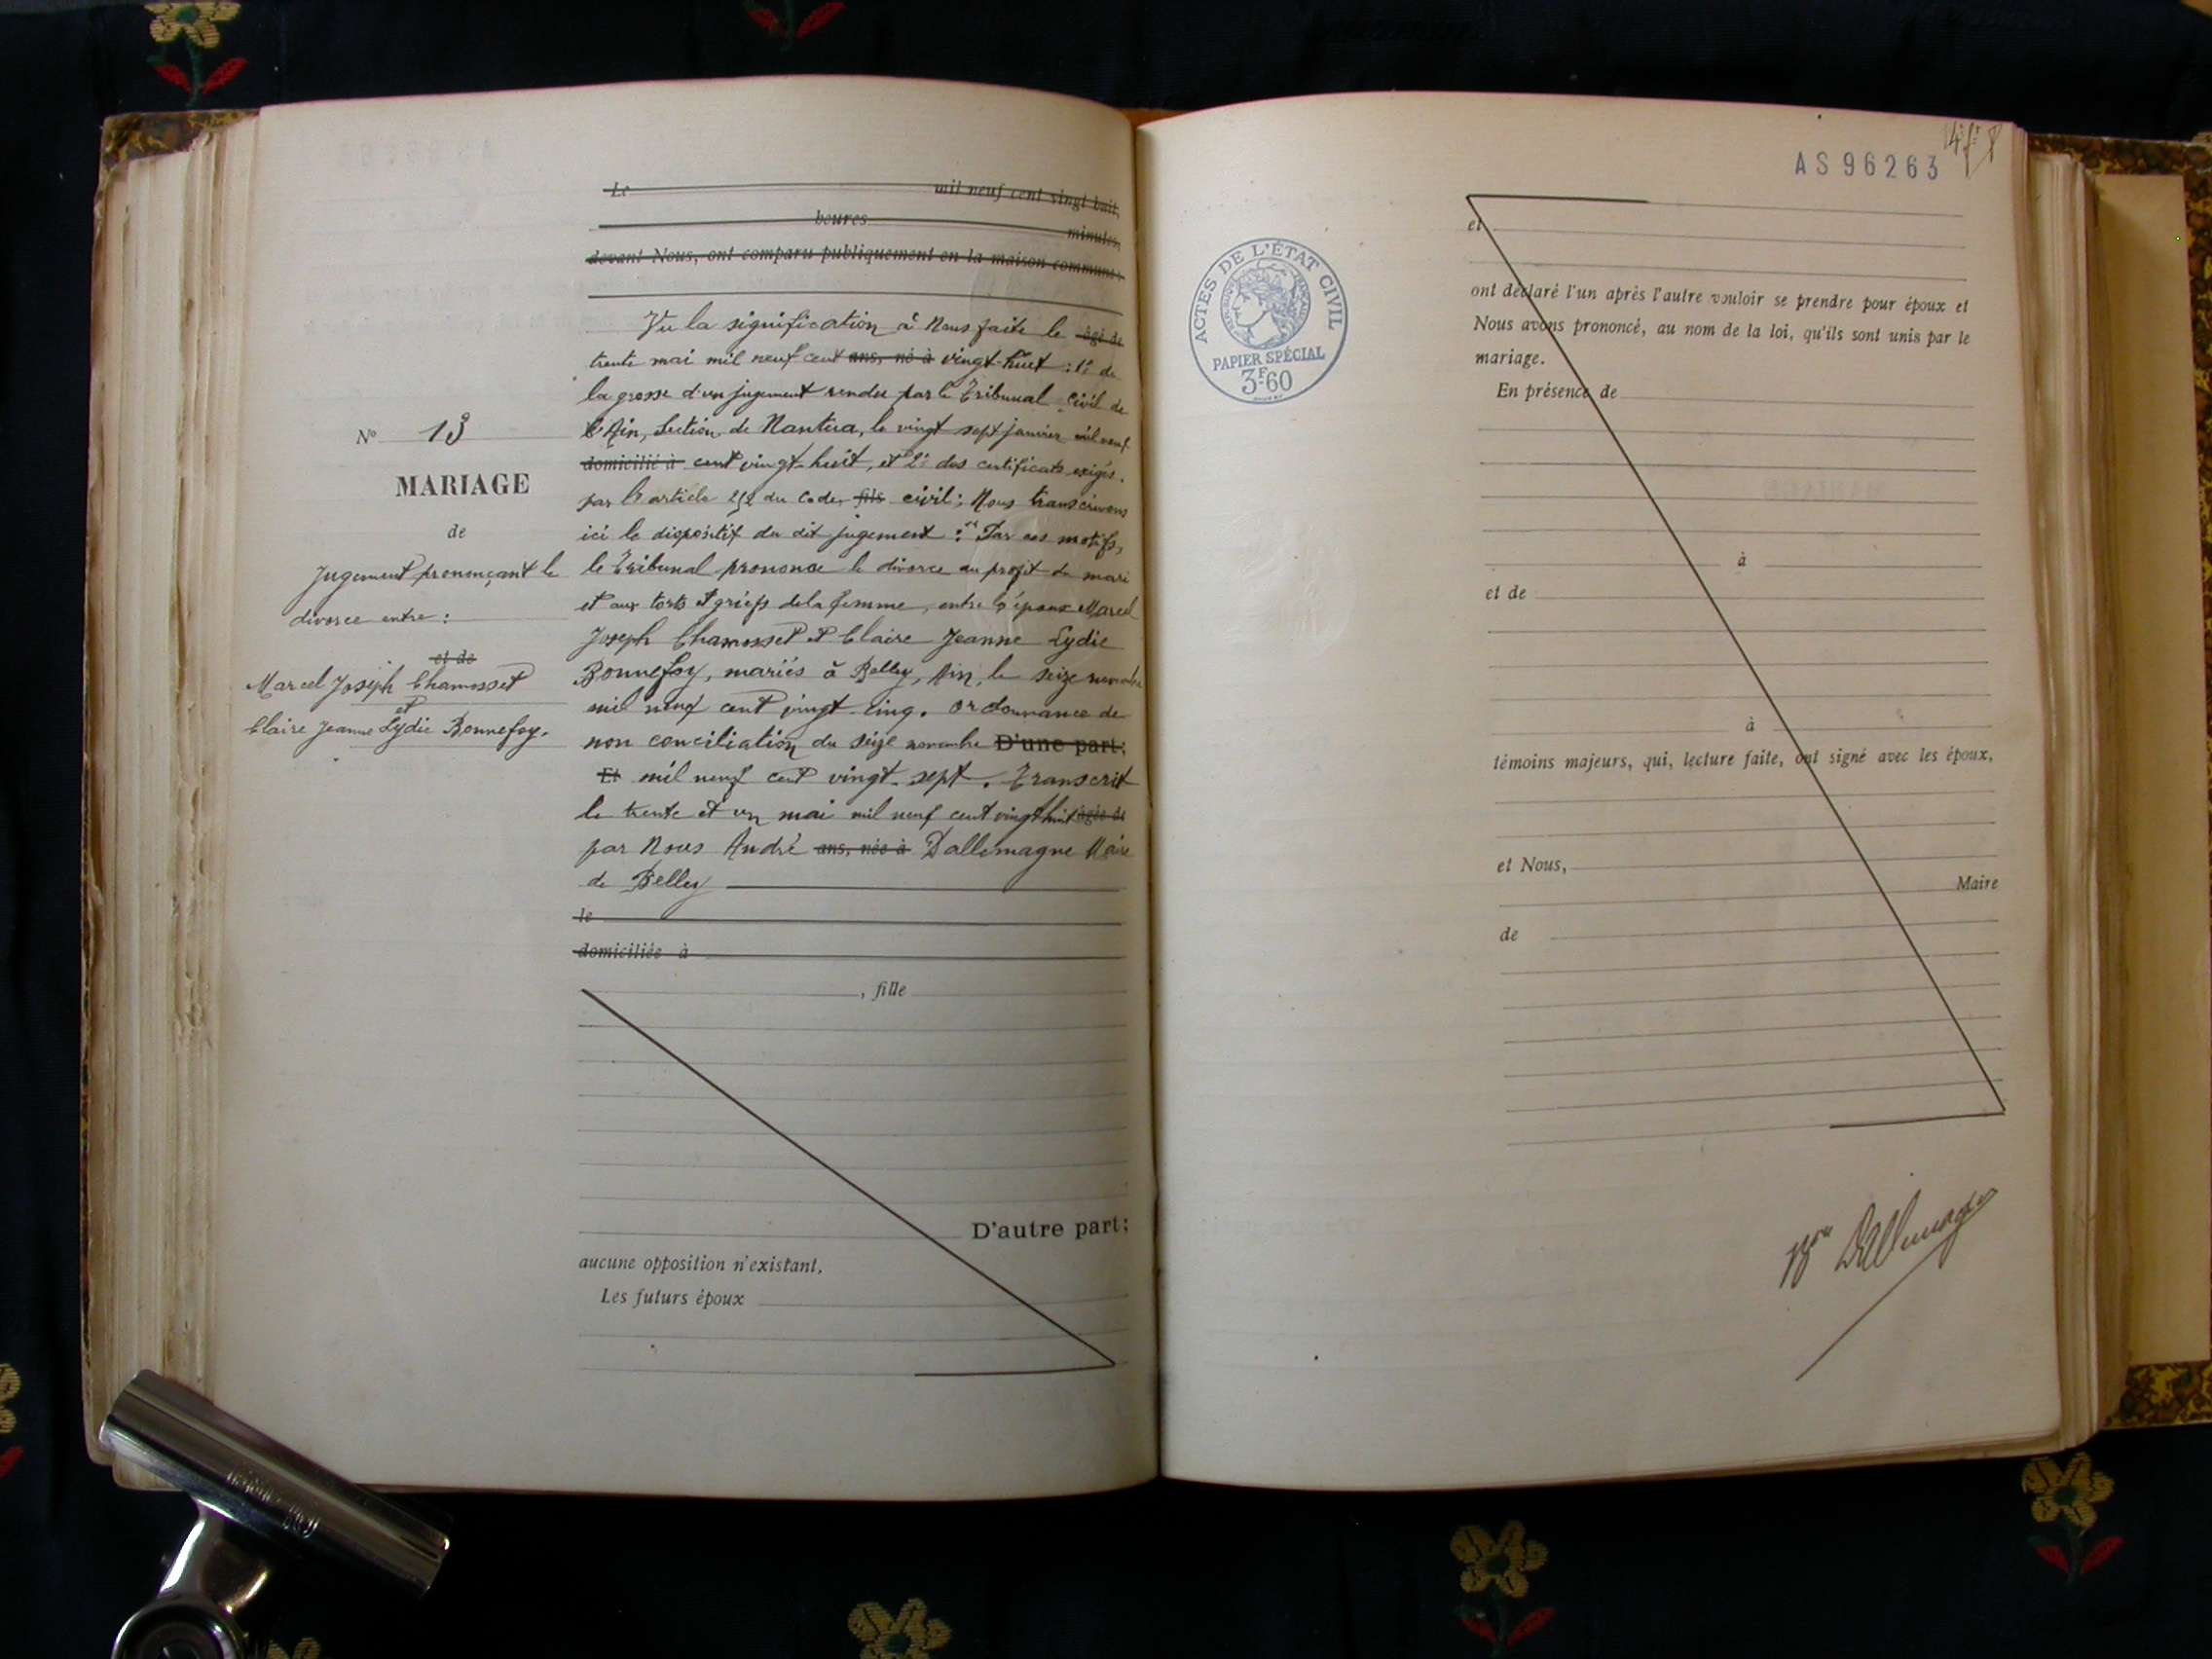 Le mil neuf cent vingt huit,
heures minutes,
devant Nous, ont comparu publiquement en la maison commune:
Vu la signification à Nous faite le âgé de
trente mai mil neuf cent ans, né à vingt-huit : 1° de
la grosse d'un jugement rendu par le Tribunal Civil de
l'Ain, Section de Nantua, le vingt sept janvier mil neuf
domicilié à cent vingt-huit, et 2° des certificats exigés
par l'article 252 du Code, fils civil; Nous transcrivons
ici le dispositif du dit jugement : "Par ces motifs,
le Tribunal prononce le divorce au profit du mari
et aux torts et griefs de la femme, entre les époux Marcel
Joseph Chamosset et Claire Jeanne Lydie
Bonnefoy, mariés à Belley, Ain, le seize novembre
mil neuf cent vingt-cinq. Ordonnance de
non conciliation du seize novembre D'une part;
Et mil neuf cent vingt-sept. Transcrit
le trente et un mai mil neuf cent vingt huit âgée de
par Nous André ans, née à Dallemagne Maire
de Belley
le
domiciliée à
, fille
D'autre part;
aucune opposition n'existant,
Les futurs époux
N° 13
MARIAGE
de
Jugement prononçant le
divorce entre :
et de
Marcel Joseph Chamosset
et
Claire Jeanne Lydie Bonnefoy.
AS 96263
ACTES DE L'ÉTAT CIVIL
PAPIER SPÉCIAL
3F60
et
ont déclaré l'un après l'autre vouloir se prendre pour époux et
Nous avons prononcé, au nom de la loi, qu'ils sont unis par le
mariage.
En présence de
à
et de
à
témoins majeurs, qui, lecture faite, ont signé avec les époux,
et Nous,
Maire
de
Dallemagne